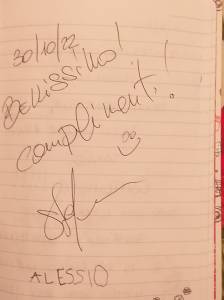 30/10/22
Bellissimo!
complimenti!
ALESSIO